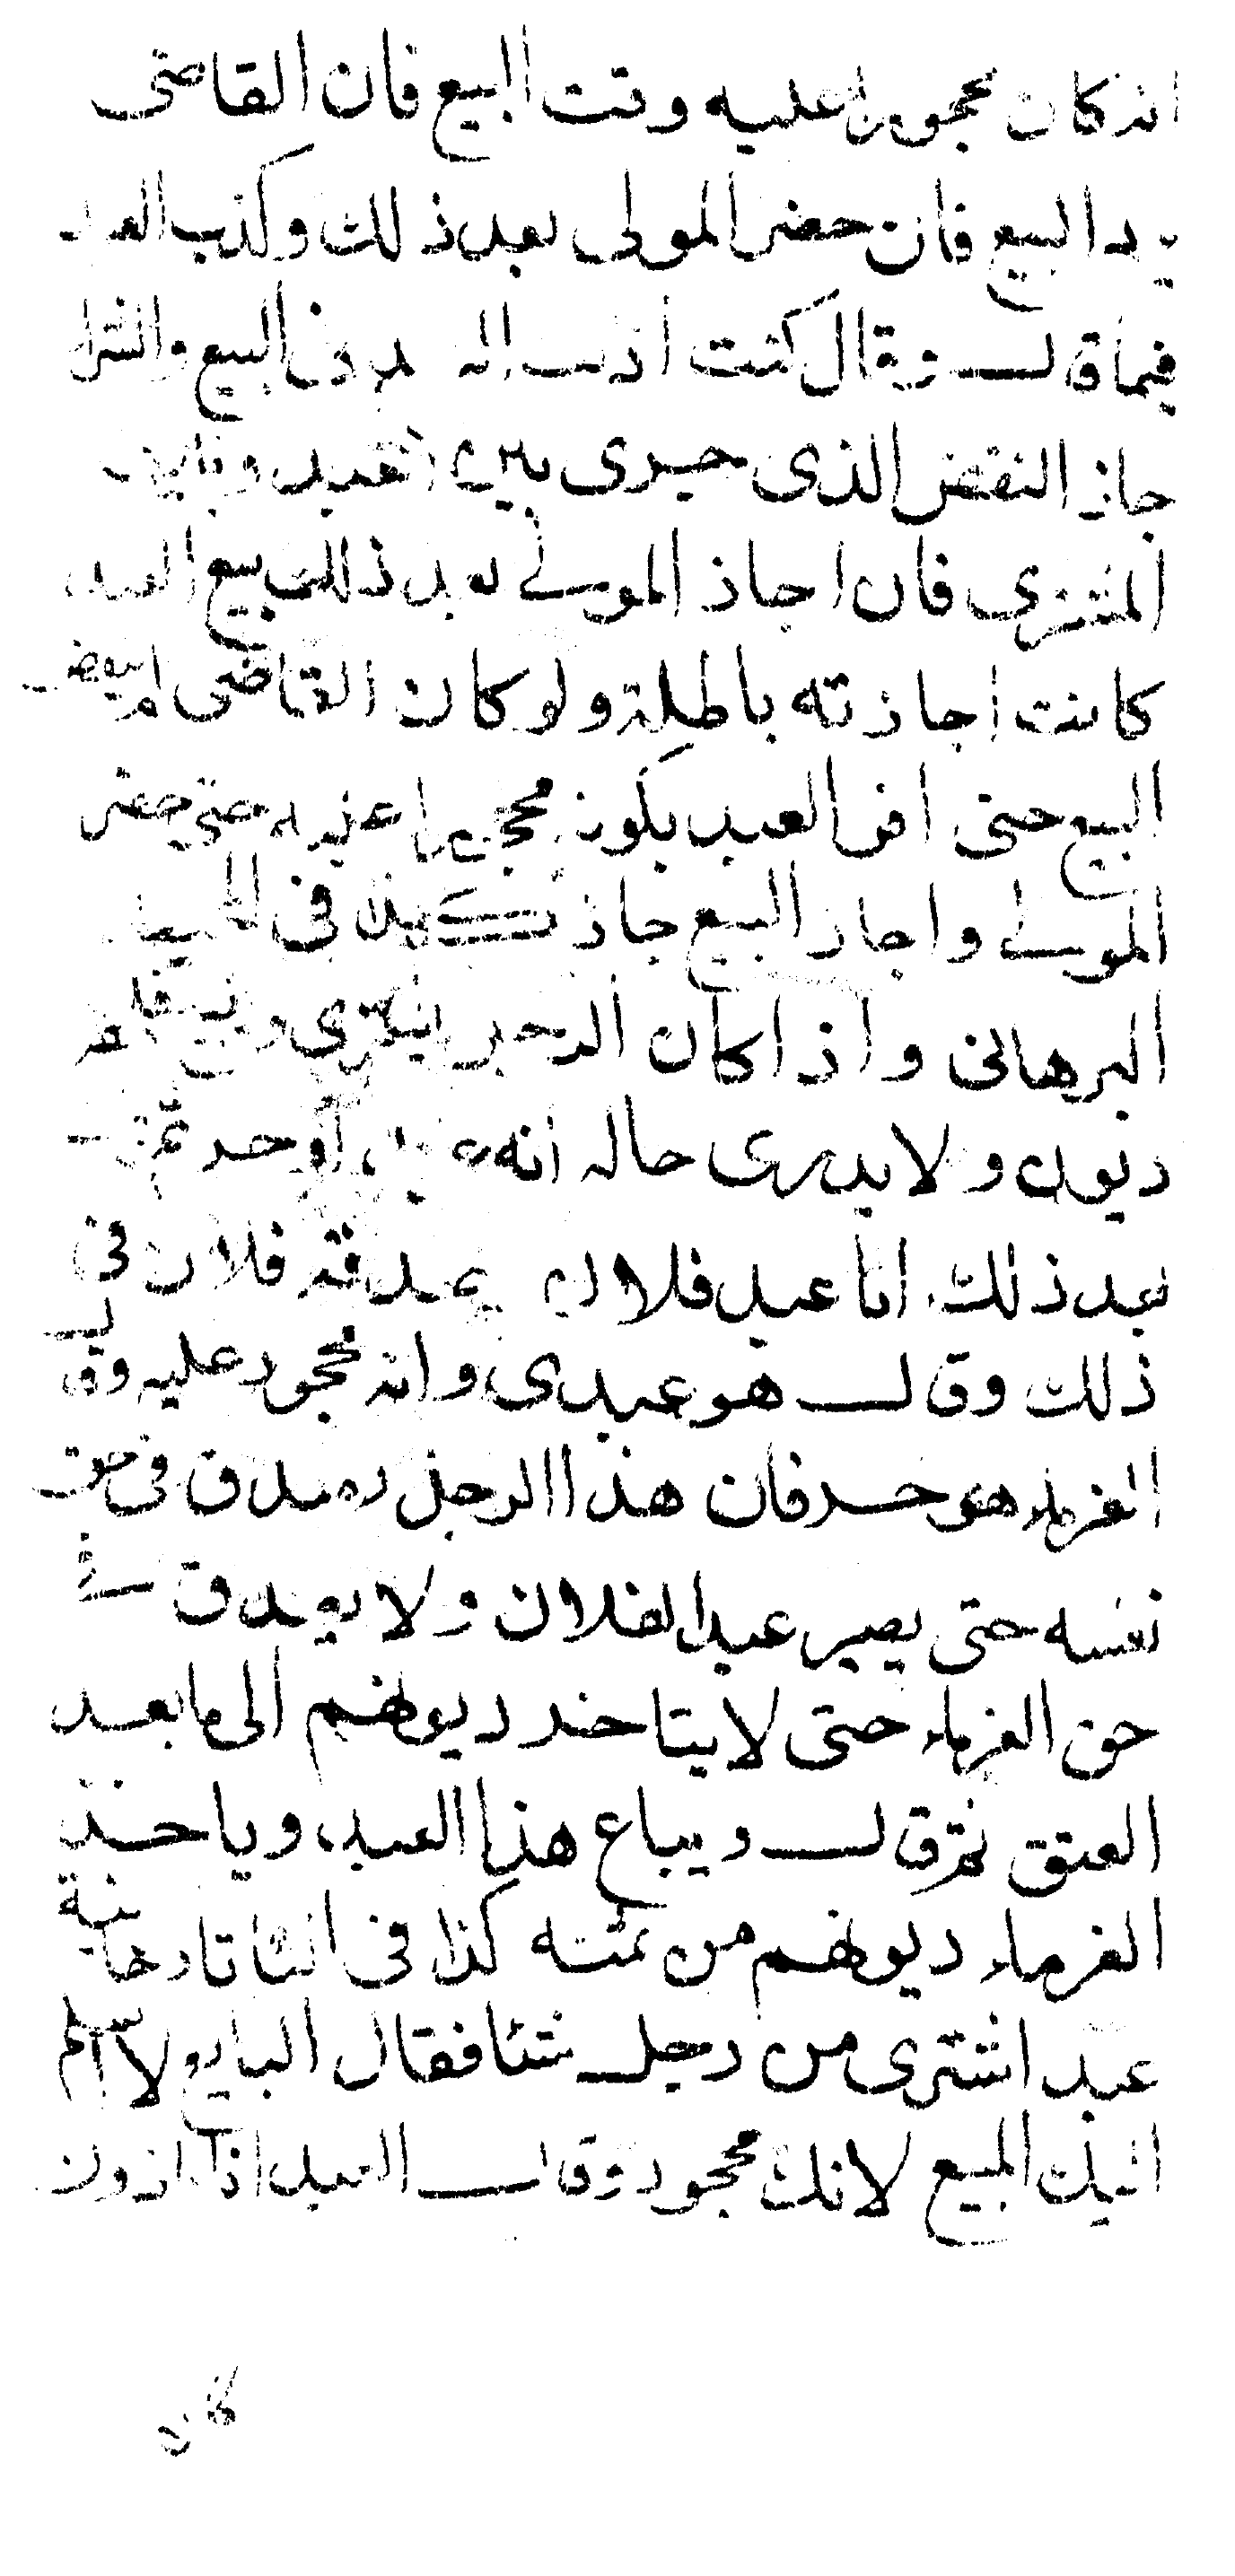 انه كان محجورا عليه وقت البيع فان القاضى
يرد البيع فان حضر المولى بعد ذلك وكذب العبد
فيما قال وقال كنت اذنت له فى البيع والشرا
جاز النقض الذى جرى بين العبد وبين
المشترى فان اجاز المولى بعد ذلك بيع العبد
كانت اجازته باطلة ولو كان القاضى لم ينقض
البيع حتى اقر العبد بكونه محجورا عليه حتى حضر
المولى واجاز البيع جاز كذا فى المحيط
البرهانى واذا كان الرجل يشترى ويبيع فلحقه
ديون ولا يدرى حاله انه عبد او حر ثم
بعد ذلك انا عبد فلان يصدقه فلان فى
ذلك وقال هو عبدى وانه محجور عليه وقال
الغرماء هو حر فان هذا الرجل يصدق فى حق
نفسه حتى يصير عبدا لفلان ولا يصدق فى
حق الغرماء حتى لا يتاخر ديونهم الى ما بعد
العتق ثم قال ويباع هذا العبد وياخذ
الغرماء ديونهم من ثمنه كذا فى التاتارخانية
عبد اشترى من رجل شئا فقال البايع لا اسلم
اليك المبيع لانك محجور وقال العبد انا ماذون
كان